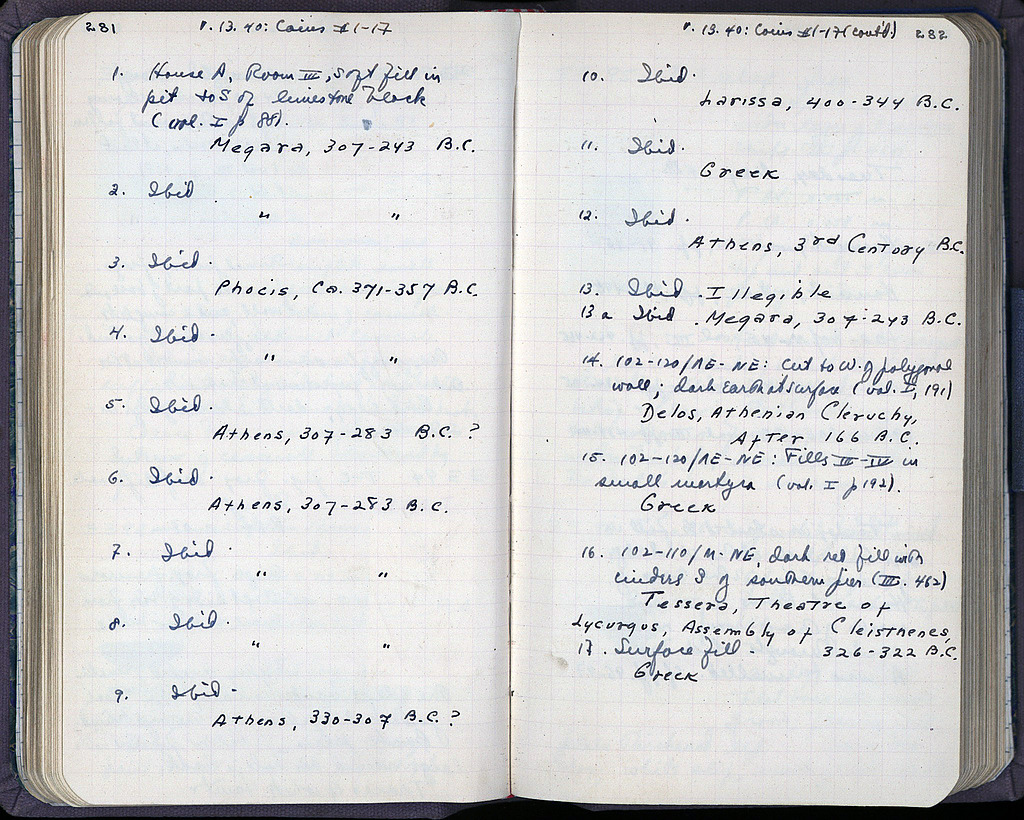 281
V. 13. 40: Coins #1-17
1. House A, Room III, soft fill in
pit to S of limestone block
(vol. I p 88).
Megara, 307-243 B.C.
2. Ibid.
" "
3. Ibid.
Phocis, Ca. 371-357 B.C.
4. Ibid.
" "
5. Ibid.
Athens, 307-283 B.C. ?
6. Ibid.
Athens, 307-283 B.C.
7. Ibid.
" "
8. Ibid.
" "
9. Ibid.
Athens, 330-307 B.C. ?
V. 13. 40: Coins #1-17 (cont'd.) 282
10. Ibid.
Larissa, 400-344 B.C.
11. Ibid.
Greek
12. Ibid.
Athens, 3rd Century B.C.
13. Ibid. Illegible
13a Ibid. Megara, 307-243 B.C.
14. 102-120/ΛΕ-ΝΕ: Cut to W. of polygonal
wall; dark earth at surface (vol. I, 191)
Delos, Athenian Cleruchy,
After 166 B.C.
15. 102-120/ΛΕ-ΝΕ: Fills III-IV in
small martyra (vol. I p 192).
Greek
16. 102-110/Μ-ΝΕ, dark red fill with
cinders S of southern pier (III. 462)
Tessera, Theatre of
Lycurgus, Assembly of Cleisthenes,
326-322 B.C.
17. Surface fill.
Greek